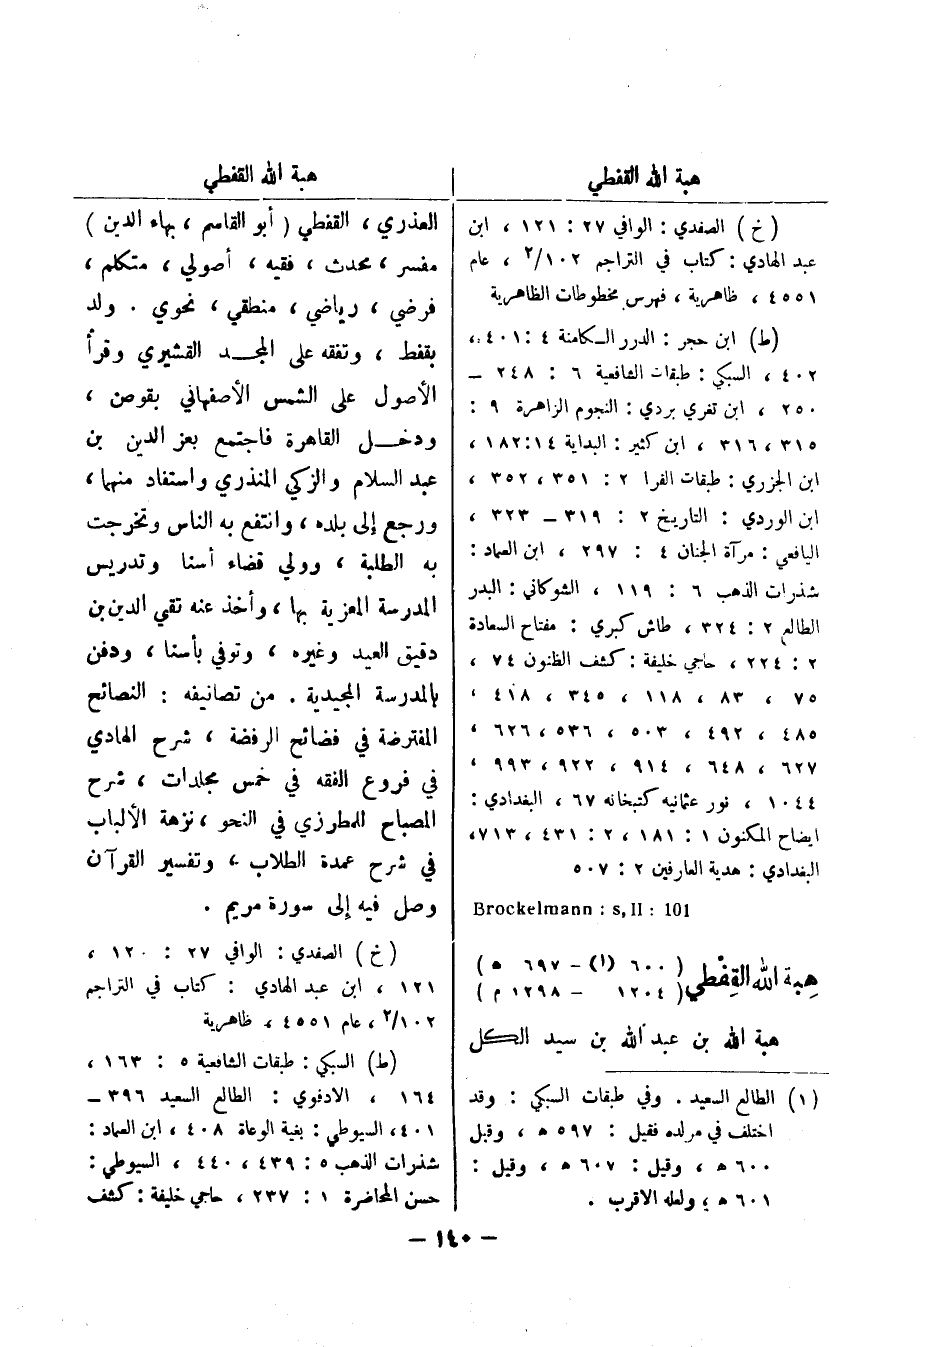 هبة الله القفطي
(خ) الصفدي : الوافي ٢٧ : ١٢١ ، ابن
عبد الهادي : كتاب في التراجم ١٠٢/٢ ، عام
٤٥٥١ ، ظاهرية ، فهرس مخطوطات الظاهرية
(ط) ابن حجر : الدرر الكامنة ٤ : ٤٠١ ،
٤٠٢ ، السبكي : طبقات الشافعية ٦ : ٢٤٨ –
٢٥٠ ، ابن تغري بردي : النجوم الزاهرة ٩ :
٣١٥ ، ٣١٦ ، ابن كثير : البداية ١٤ : ١٨٢ ،
ابن الجزري : طبقات القرا ٢ : ٣٥١ ، ٣٥٢ ،
ابن الوردي : التاريخ ٢ : ٣١٩ – ٣٢٣ ،
اليافعي : مرآة الجنان ٤ : ٢٩٧ ، ابن العماد :
شذرات الذهب ٦ : ١١٩ ، الشوكاني : البدر
الطالع ٢ : ٣٢٤ ، طاش كبري : مفتاح السعادة
٢ : ٢٢٤ ، حاجي خليفة : كشف الظنون ٧٤ ،
٧٥ ، ٨٣ ، ١١٨ ، ٣٤٥ ، ٤١٨ ،
٤٨٥ ، ٤٩٢ ، ٥٠٣ ، ٥٣٦ ، ٦٢٦ ،
٦٢٧ ، ٦٤٨ ، ٩١٤ ، ٩٢٢ ، ٩٩٣ ،
١٠٤٤ ، نور عثمانيه كتبخانه ٦٧ ، البغدادي :
ايضاح المكنون ١ : ١٨١ ، ٢ : ٤٣١ ، ٧١٣ ،
البغدادي : هدية العارفين ٢ : ٥٠٧
Brockelmann : s, II : 101
هِبة الله القِفْطي ( ٦٠٠ (١) – ٦٩٧ ه )
( ١٢٠٤ – ١٢٩٨ م )
هبة الله بن عبد الله بن سيد الكل
(١) الطالع السعيد . وفي طبقات السبكي : وقد
اختلف في مولده فقيل : ٥٩٧ ه ، وقيل
٦٠٠ ه ، وقيل : ٦٠٧ ه ، وقيل :
٦٠١ ه ، ولعله الاقرب .
هبة الله القفطي
العذري ، القفطي ( أبو القاسم ، بهاء الدين )
مفسر ، محدث ، فقيه ، أصولي ، متكلم ،
فرضي ، رياضي ، منطقي ، نحوي . ولد
بقفط ، وتفقه على المجد القشيري وقرأ
الأصول على الشمس الأصفهاني بقوص ،
ودخل القاهرة فاجتمع بعز الدين بن
عبد السلام والزكي المنذري واستفاد منهما ،
ورجع إلى بلده ، وانتفع به الناس وتخرجت
به الطلبة ، وولي قضاء أسنا وتدريس
المدرسة المعزية بها ، وأخذ عنه تقي الدين بن
دقيق العيد وغيره ، وتوفي بأسنا ، ودفن
بالمدرسة المجيدية . من تصانيفه : النصائح
المفترضة في فضائح الرفضة ، شرح الهادي
في فروع الفقه في خمس مجلدات ، شرح
المصباح للمطرزي في النحو ، نزهة الألباب
في شرح عمدة الطلاب ، وتفسير القرآن
وصل فيه إلى سورة مريم .
(خ) الصفدي : الوافي ٢٧ : ١٢٠ ،
١٢١ ، ابن عبد الهادي : كتاب في التراجم
١٠٢/٢ ، عام ٤٥٥١ ، ظاهرية
(ط) السبكي : طبقات الشافعية ٥ : ١٦٣ ،
١٦٤ ، الادفوي : الطالع السعيد ٣٩٦ –
٤٠١ ، السيوطي : بغية الوعاة ٤٠٨ ، ابن العماد :
شذرات الذهب ٥ : ٤٣٩ ، ٤٤٠ ، السيوطي :
حسن المحاضرة ١ : ٢٣٧ ، حاجي خليفة : كشف
– ١٤٠ –